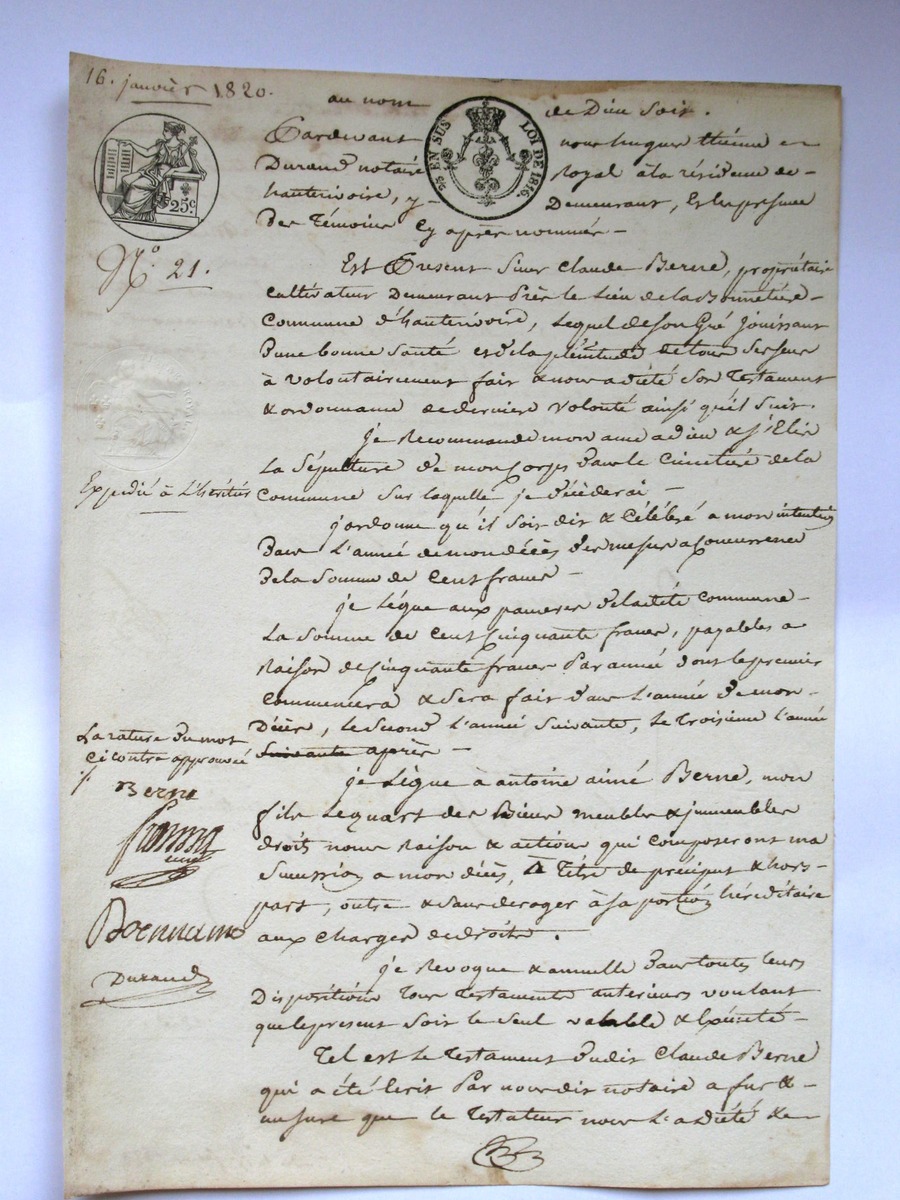 16. janvier 1820.
au nom de Dieu soit.
Pardevant nous hugues étienne
Durand notaire Royal à la résidence de
hauterivoire, y Demeurant, Et les présence
Des Témoins Cy après nommés
25 EN SUS LOI DE 1816.
25c.
N.o 21.
Est Present Sieur Claude Berne, propriétaire
cultivateur Demeurant Près le Lieu de la Bonnetière
Commune d'hauterivoire, Lequel de son Gré Jouissant
D'une bonne Santé et de la plénitude de tous Ses Sens
à volontairement fait & nous a dicté Son Testament
& ordonnance de derniere volonté ainsi qu'il suit.
Je Recommande mon ame a dieu & j'Elis
La Sépulture de mon Corps dans le Cimetière de la
Expédié à L'héritier
Commune Sur laquelle je décèderai
j'ordonne qu'il soit dit & célébré a mon intention
Dans L'année de mon décès des messes a Concurrence
De la Somme de Cent francs
je Lègue aux pauvres de ladite Commune
La Somme de Cent Cinquante francs, payables a
Raison de Cinquante francs Par année dont le premier
commencera & sera fait dans L'année de mon
Décès, le Second L'année Suivante, Le Troisième L'année
Suivante après
La rature du mot
Ci contre approuvée
Berne
Boennand
Durand
je Lègue à antoine aimé Berne, mon
fils Le quart des Biens meubles & immeubles
droits noms Raison & actions qui composeront ma
Succession a mon décès, A Titre de préciput & hors
part, outre & Sans deroger à sa portion héréditaire
aux Charges de droits.
je Revoque & annulle Dans toutes leurs
Dispositions Tous Testaments anterieurs voulant
que le present Soit le Seul valable & Exécuté
Tel est le Testament dudit Claude Berne
qui a été Ecrit Par nous dit notaire a fur &
mesure que le Testateur nous L'a dicté &